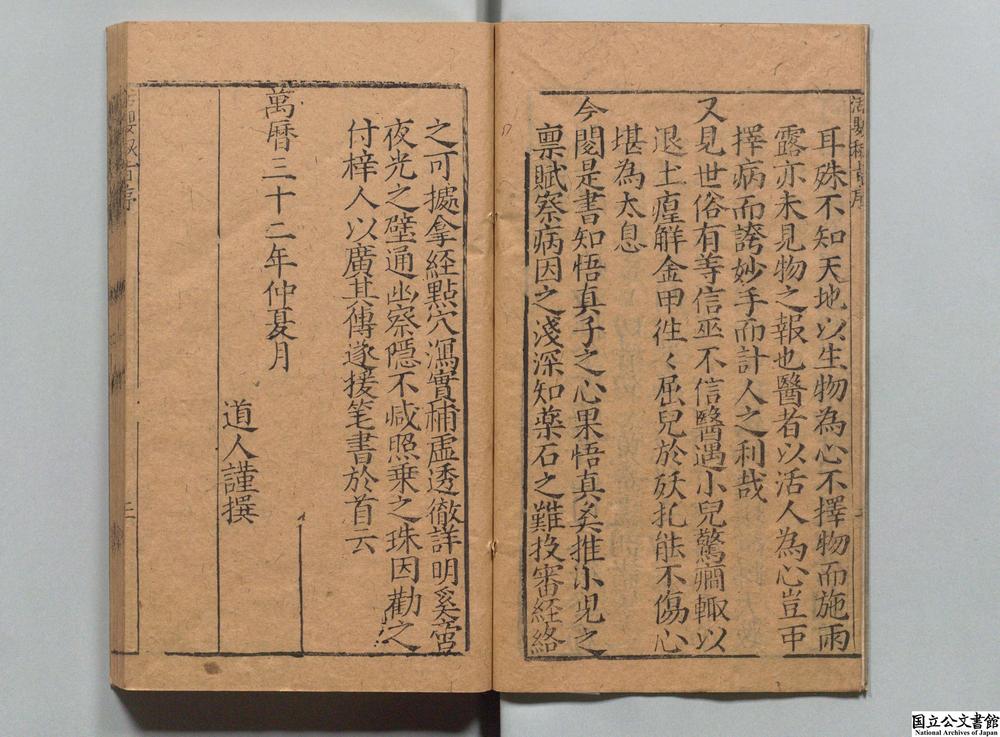 耳殊不知天地以生物為心不擇物而施雨
露亦未見物之報也醫者以活人為心豈可
擇病而誇妙手而計人之利哉
又見世俗有等信巫不信醫遇小兒驚癇輙以
退土瘟解金甲徃〻屈兒於殀扎能不傷心
堪為太息
今閱是書知悟真子之心果悟真矣推小兒之
禀賦察病因之淺深知薬石之難投審経絡
之可據拿経㸃穴瀉實補虛透徹詳明奚啻
夜光之璧通幽察隱不减照乗之珠因勸之
付梓人以廣其傳遂援笔書於首云
萬曆三十二年仲夏月
道人謹撰
二
国立公文書館
National Archives of Japan